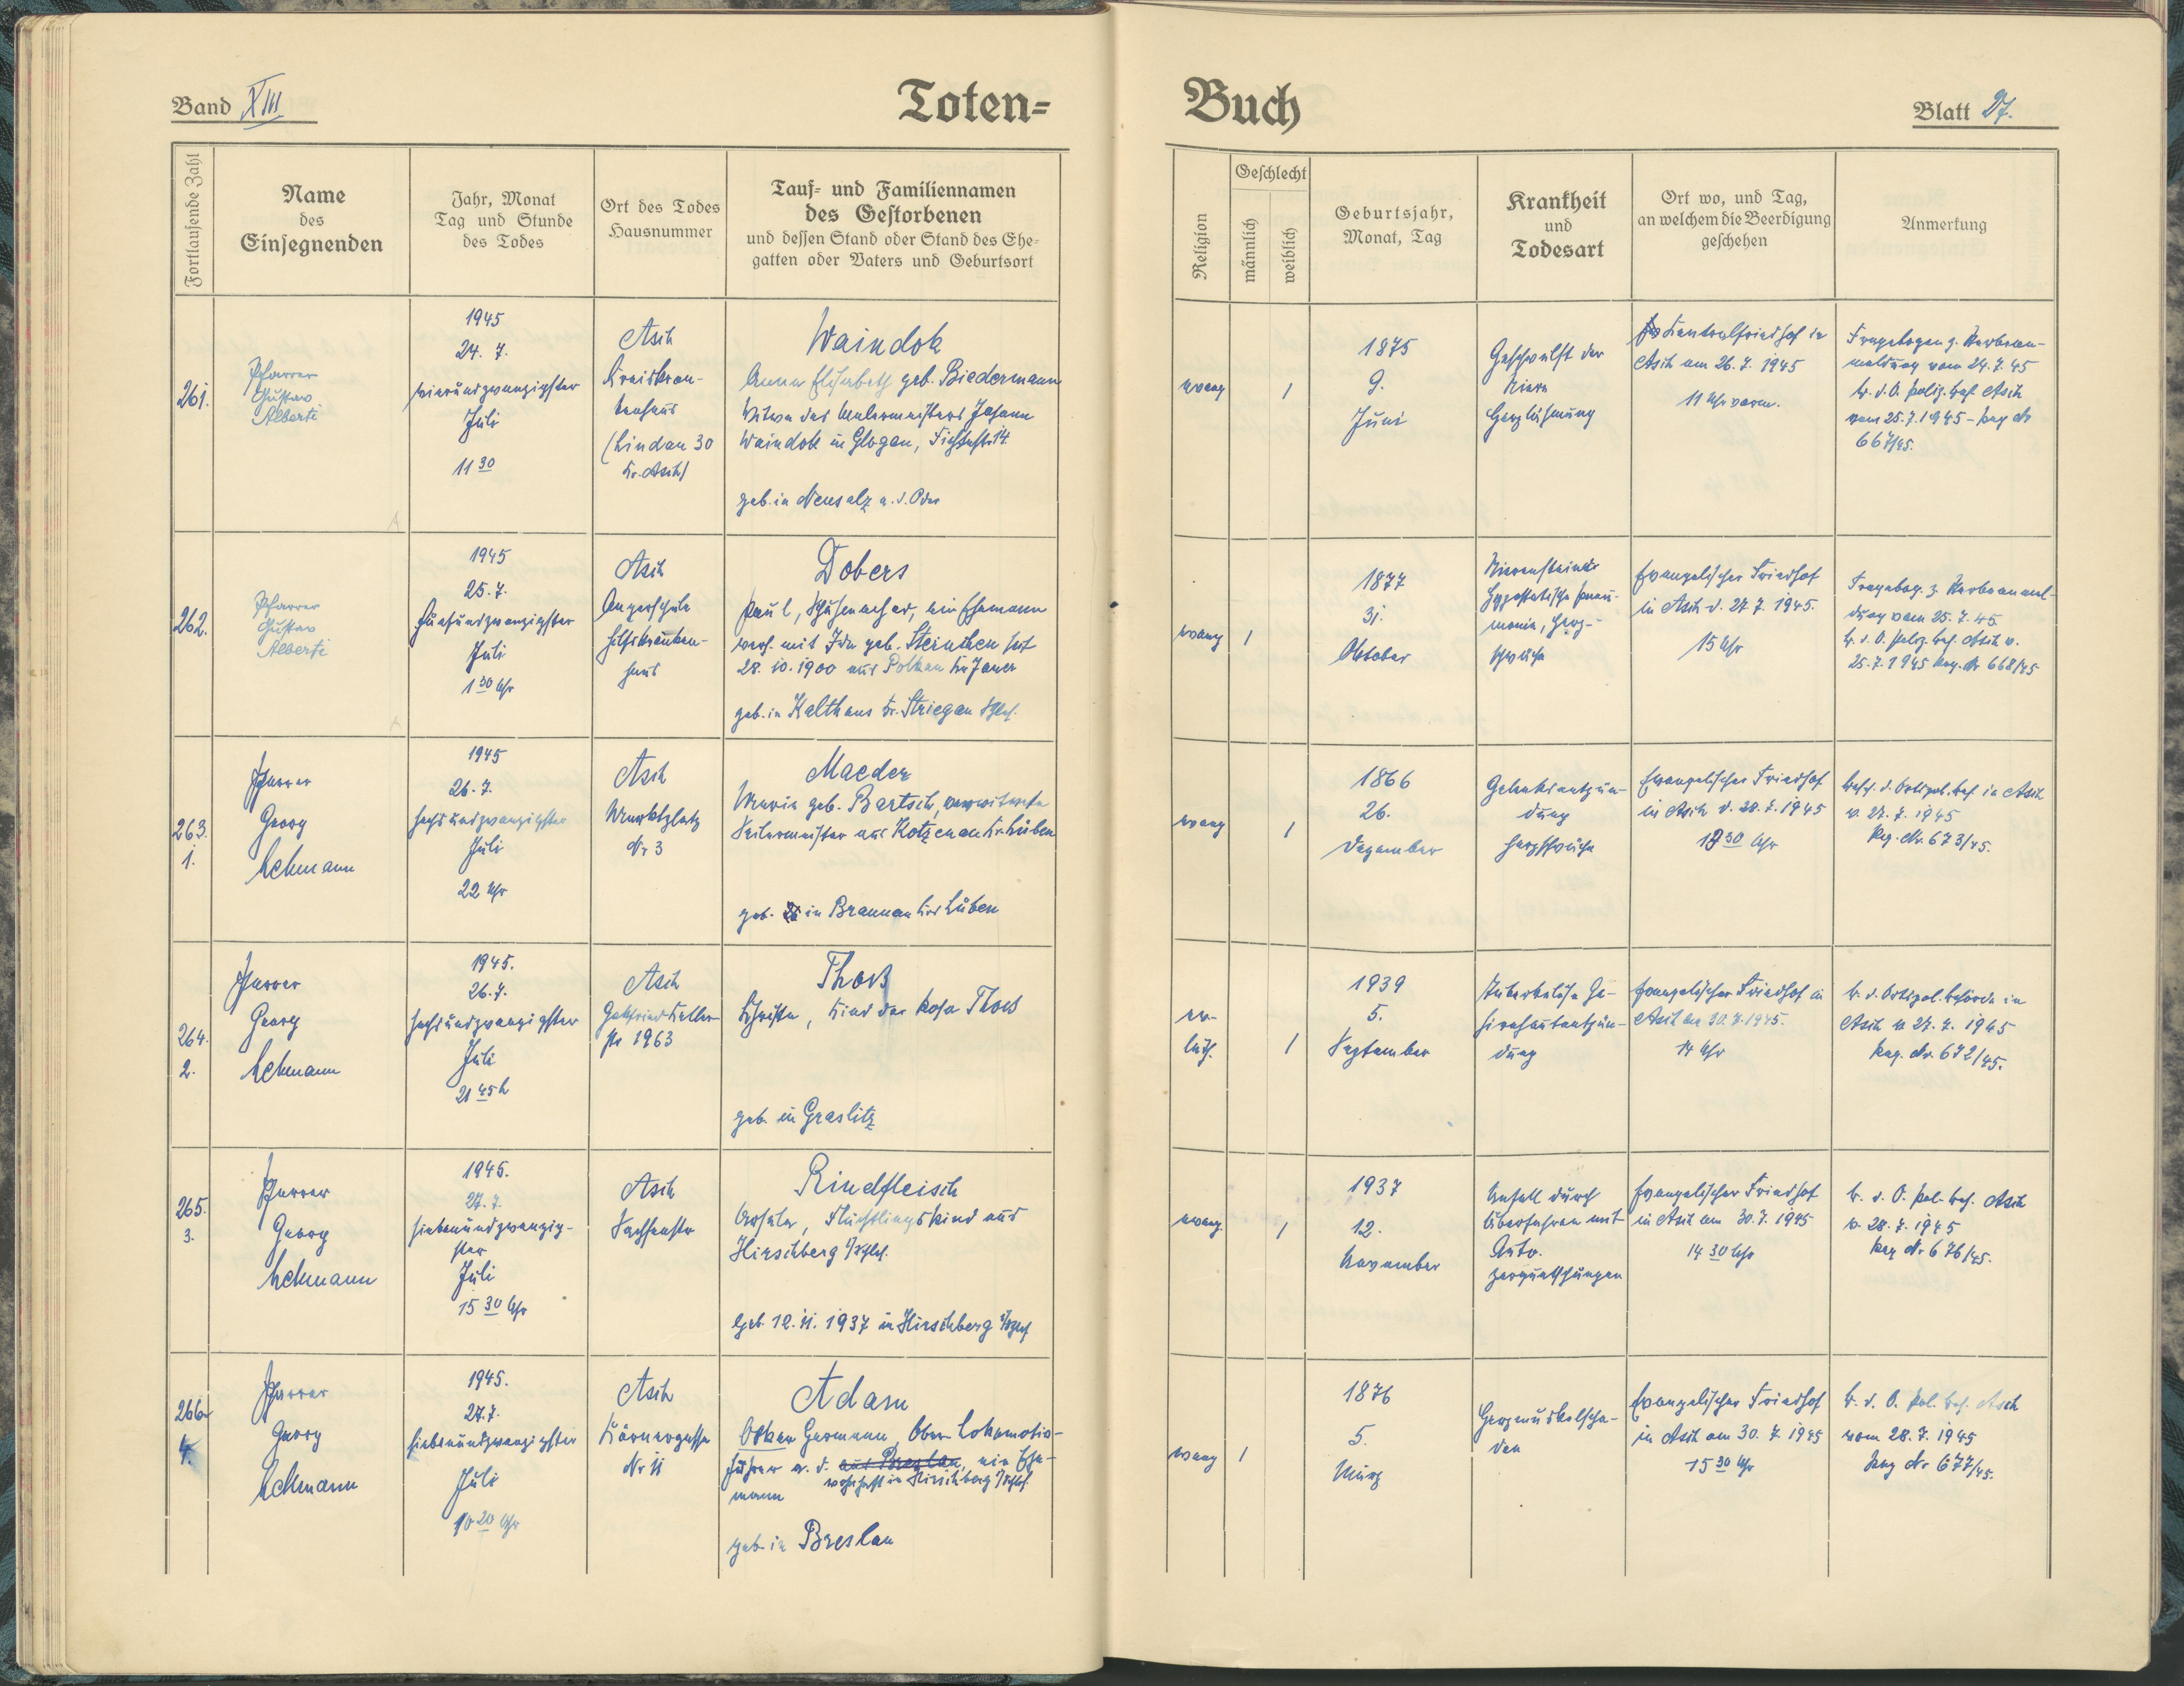 Band XIII
Toten-
Buch
Blatt 27.
Fortlaufende Zahl
Name
des
Einsegnenden
Jahr, Monat
Tag und Stunde
des Todes
Ort des Todes
Hausnummer
Tauf- und Familiennamen
des Gestorbenen
und dessen Stand oder Stand des Ehe-
gatten oder Vaters und Geburtsort
Religion
Geschlecht
männlich
weiblich
Geburtsjahr,
Monat, Tag
Krankheit
und
Todesart
Ort wo, und Tag,
an welchem die Beerdigung
geschehen
Anmerkung
261.
Pfarrer
Gustav
Alberti
1945
24. 7.
vierundzwanzigster
Juli
11 30
Asch
Kreiskran-
kenhaus
(Lindau 30
Kr. Asch)
Waindok
Anna Elisabeth geb. Biedermann
Witwe des Malermeisters Johann
Waindok in Glogau, Fichtestr. 14
geb. in Neusalz a. d. Oder
evang
1
1875
9.
Juni
Geschwulst der
Niere
Herzlähmung
Zentralfriedhof in
Asch am 26. 7. 1945
11 Uhr vorm.
Fragebogen z. Sterbean-
meldung vom 24. 7. 45
B. d. O. poliz. beh. Asch
vom 25. 7. 1945 - Reg Nr
667/45.
262.
Pfarrer
Gustav
Alberti
1945
25. 7.
fünfundzwanzigster
Juli
1 30 Uhr
Asch
Angerschule
Hilfskranken-
haus
Dobers
Paul, Schuhmacher, ein Ehemann
verh. mit Ida geb. seit
28. 10. 1900 aus Polkau Kr Jauer
geb. in Kalthaus Kr. Striegau Schles.
evang
1
1877
31.
Oktober
Nierensteine
Hypostatische Pneu-
monie, Herz-
schwäche
Evangelischer Friedhof
in Asch d. 27. 7. 1945.
15 Uhr
Fragebog. z. Sterbeanmel-
dung vom 25. 7. 45
B. d. O. poliz. beh. Asch v.
25. 7. 1945 Reg. Nr 668/45
263.
1.
Pfarrer
Georg
Lehmann
1945
26. 7.
sechsundzwanzigster
Juli
22 Uhr
Asch
Marktplatz
Nr 3
Maeder
Maria geb. Bartsch, verwitwete
Seilermeister aus Kotzenau Kr. Lüben
geb. in Braunau Krs Lüben
evang
1
1866
26.
Dezember
Gelenksentzün-
dung
Herzschwäche
Evangelischer Friedhof
in Asch d. 28. 7. 1945
30 Uhr
Besch. d. Ortspol. beh. in Asch
v. 27. 7. 1945
Reg. Nr. 673/45.
264.
2.
Pfarrer
Georg
Lehmann
1945.
26. 7.
sechsundzwanzigster
Juli
21 45 h
Asch
Gottfried Keller
str 1963
Thoß
Christa, Kind der Rosa Thoß
geb. in Graslitz
ev-
luth.
1
1939
5.
September
Tuberkulöse Ge-
hirnhautentzün-
dung
Evangelischer Friedhof in
Asch am 30. 7. 1945.
14 Uhr
B. d. Ortspol. behörde in
Asch v. 27. 7. 1945
Reg. Nr. 672/45.
265.
3.
Pfarrer
Georg
Lehmann
1945.
27. 7.
siebenundzwanzig-
ster
Juli
15 30 Uhr
Asch
Sachsenstr
Rindfleisch
Flüchtlingskind aus
Hirschberg i/Schles.
Geb. 12. 11. 1937 in Hirschberg i/Schles
evang.
1
1937
12.
November
Unfall durch
Überfahren mit
Auto.
Zerquetschungen
Evangelischer Friedhof
in Asch am 30. 7. 1945
14 30 Uhr
B. d. O. Pol. beh. Asch
v. 28. 7. 1945
Reg Nr 676/45.
266
4.
Pfarrer
Georg
Lehmann
1945.
27. 7.
siebenundzwanzigster
Juli
10 20 Uhr
Asch
Körnergasse
Nr 11
Adam
Oskar Hermann, Ober Lokomotiv-
führer a. d. aus Breslau, ein Ehe-
mann wohnhaft in Hirschberg i/Schles.
geb. in Breslau
evang
1
1876
5.
März
Herzmuskelscha-
den
Evangelischer Friedhof
in Asch am 30. 7. 1945
15 30 Uhr
B. d. O. Pol. beh. Asch
vom 28. 7. 1945
Reg Nr 677/45.